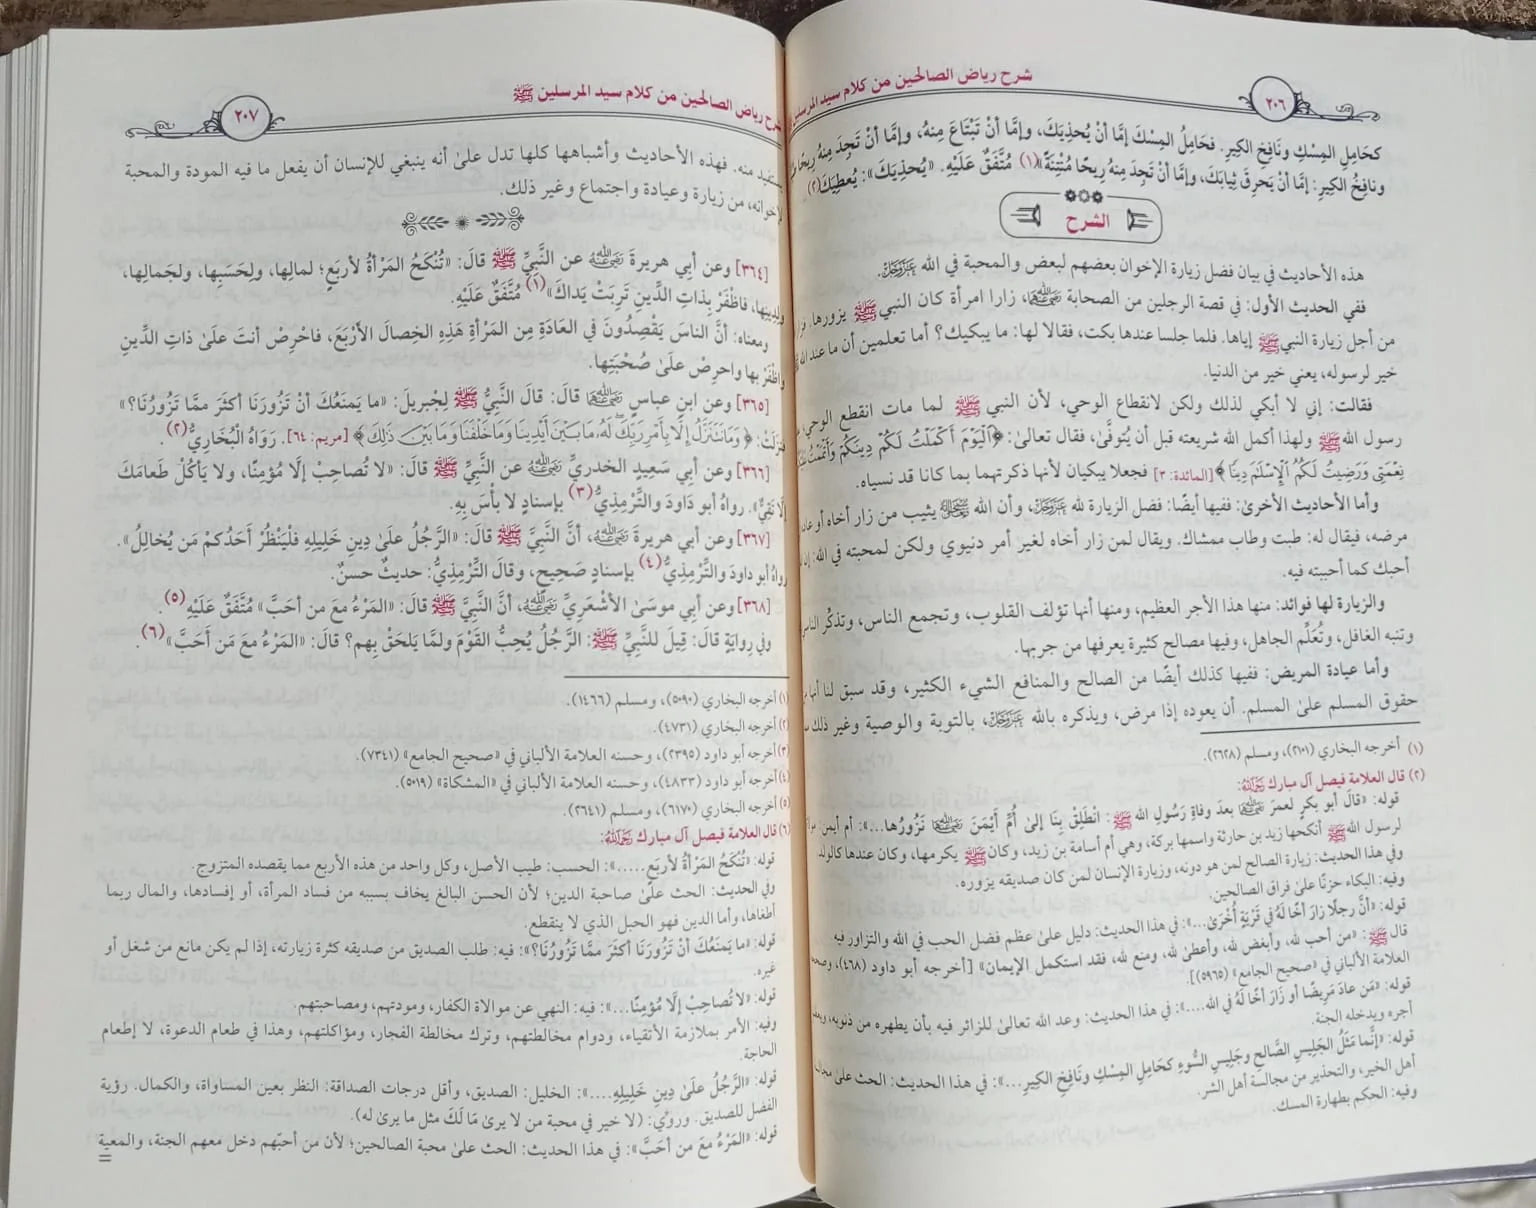 شرح رياض الصالحين من كلام سيد المرسلين
٢٠٦
كحَامِلِ المِسْكِ ونَافِخِ الكِيرِ. فَحَامِلُ المِسْكَ إمَّا أَنْ يُحْذِيَكَ، وإمَّا أَنْ تَبْتَاعَ مِنهُ، وإمَّا أَنْ تَجِدَ مِنهُ رِيحًا
ونافِخُ الكِيرِ: إمَّا أَنْ يَحرِقَ ثِيابَكَ، وإمَّا أَنْ تَجِدَ مِنهُ رِيحًا مُنْتِنَةً»(١) مُتَّفَقٌ عَلَيْهِ. «يُحْذِيَكَ»: يُعطِيَكَ(٢)
الشرح
هذه الأحاديث في بيان فضل زيارة الإخوان بعضهم لبعض والمحبة في الله عَزَّوَجَلَّ.
ففي الحديث الأول: في قصة الرجلين من الصحابة رَضِيَ اللَّهُ عَنْهُمَا، زارا امرأة كان النبي ﷺ يزورها،
من أجل زيارة النبي ﷺ إياها. فلما جلسا عندها بكت، فقالا لها: ما يبكيك؟ أما تعلمين أن ما عند الله
خير لرسوله، يعني خير من الدنيا.
فقالت: إني لا أبكي لذلك ولكن لانقطاع الوحي، لأن النبي ﷺ لما مات انقطع الوحي،
رسول الله ﷺ ولهذا أكمل الله شريعته قبل أن يُتوفَّى، فقال تعالى: ﴿ٱلْيَوْمَ أَكْمَلْتُ لَكُمْ دِينَكُمْ وَأَتْمَمْتُ
نِعْمَتِى وَرَضِيتُ لَكُمُ ٱلْإِسْلَٰمَ دِينًا﴾ [المائدة: ٣] فجعلا يبكيان لأنها ذكرتهما بما كانا قد نسياه.
وأما الأحاديث الأخرى: ففيها أيضًا: فضل الزيارة لله عَزَّوَجَلَّ، وأن الله يثيب من زار أخاه أو
مرضه، فيقال له: طبت وطاب ممشاك. ويقال لمن زار أخاه لغير أمر دنيوي ولكن لمحبته في الله:
أحبك كما أحببته فيه.
والزيارة لها فوائد: منها هذا الأجر العظيم، ومنها أنها تؤلف القلوب، وتجمع الناس، وتذكّر
وتنبه الغافل، وتُعَلِّم الجاهل، وفيها مصالح كثيرة يعرفها من جربها.
وأما عيادة المريض: ففيها كذلك أيضًا من الصالح والمنافع الشيء الكثير، وقد سبق لنا
حقوق المسلم على المسلم. أن يعوده إذا مرض، ويذكره بالله عَزَّوَجَلَّ، بالتوبة والوصية وغير ذلك
(١) أخرجه البخاري (٢١٠١)، ومسلم (٢٦٢٨).
(٢) قال العلامة فيصل آل مبارك رَحِمَهُ اللَّهُ:
قوله: «قالَ أبو بكرٍ لعمرَ رَضِيَ اللَّهُ عَنْهُمَا بعدَ وفاةِ رَسُولِ الله ﷺ: انْطَلِقْ بِنَا إلى أُمِّ أَيْمَنَ نَزُورُها...»: أم أيمن:
لرسول الله ﷺ أنكحها زيد بن حارثة واسمها بركة، وهي أم أسامة بن زيد، وكان ﷺ يكرمها، وكان عندها كالولد.
وفي هذا الحديث: زيارة الصالح لمن هو دونه، وزيارة الإنسان لمن كان صديقه يزوره.
وفيه: البكاء حزنًا على فراق الصالحين.
قوله: «أنَّ رجلًا زارَ أخًا لَهُ في قَرْيَةٍ أُخْرَى...»: في هذا الحديث: دليل على عظم فضل الحب في الله والتزاور فيه
قال ﷺ: «من أحب لله، وأبغض لله، وأعطى لله، ومنع لله، فقد استكمل الإيمان» [أخرجه أبو داود (٤٦٨)،
العلامة الألباني في «صحيح الجامع» (٥٩٦٥)].
قوله: «مَن عادَ مَرِيضًا أو زَارَ أخًا لَهُ في الله....»: في هذا الحديث: وعد الله تعالى للزائر فيه بأن يطهره من ذنوبه،
أجره ويدخله الجنة.
قوله: «إنَّما مَثَلُ الجَلِيسِ الصَّالِحِ وجَلِيسِ السُّوءِ كحَامِلِ المِسْكِ ونَافِخِ الكِيرِ...»: في هذا الحديث: الحث على
أهل الخير، والتحذير من مجالسة أهل الشر.
وفيه: الحكم بطهارة المسك.
شرح رياض الصالحين من كلام سيد المرسلين ﷺ
٢٠٧
يستفيد منه. فهذه الأحاديث وأشباهها كلها تدل على أنه ينبغي للإنسان أن يفعل ما فيه المودة والمحبة
لإخوانه، من زيارة وعيادة واجتماع وغير ذلك.
[٣٦٤] وعن أبِي هريرةَ رَضِيَ اللَّهُ عَنْهُ عن النَّبِيِّ ﷺ قالَ: «تُنْكَحُ المَرْأةُ لأربَعٍ؛ لمالِها، ولِحَسَبِها، ولجَمالِها،
ولِدِينِها، فاظْفَرْ بِذاتِ الدِّينِ تَرِبَتْ يَداكَ»(١) مُتَّفَقٌ عَلَيْهِ.
ومعناه: أنَّ الناسَ يَقْصِدُونَ في العَادَةِ مِن المَرْأةِ هَذِهِ الخِصالَ الأرْبَعَ، فاحْرِصْ أنتَ على ذاتِ الدِّينِ
واظْفَرْ بها واحرِصْ على صُحْبَتِها.
[٣٦٥] وعن ابنِ عباسٍ رَضِيَ اللَّهُ عَنْهُمَا قالَ: قالَ النَّبِيُّ ﷺ لِجْبريلَ: «ما يَمنَعُكَ أنْ تَزُورَنَا أكثَرَ ممَّا تَزُورُنَا؟»
فنزلَتْ: ﴿وَمَا نَتَنَزَّلُ إِلَّا بِأَمْرِ رَبِّكَ لَهُۥ مَا بَيْنَ أَيْدِينَا وَمَا خَلْفَنَا وَمَا بَيْنَ ذَٰلِكَ﴾ [مريم: ٦٤]. رَوَاهُ الْبُخَارِيُّ(٢).
[٣٦٦] وعن أبي سَعِيدٍ الخدريِّ رَضِيَ اللَّهُ عَنْهُ عن النَّبِيِّ ﷺ قالَ: «لا تُصَاحِبْ إلَّا مُؤْمِنًا، ولا يَأكُلْ طَعامَكَ
إلَّا تَقِيٌّ». رواهُ أبو دَاودَ والتِّرْمِذِيُّ(٣) بإسنادٍ لا بأسَ بِهِ.
[٣٦٧] وعن أبي هريرةَ رَضِيَ اللَّهُ عَنْهُ، أنَّ النَّبِيَّ ﷺ قالَ: «الرَّجُلُ على دِينِ خَلِيلِهِ فَلْيَنْظُرْ أحَدُكمْ مَن يُخالِلُ».
رواهُ أبو دَاودَ والتِّرْمِذِيُّ(٤) بإسنادٍ صَحِيحٍ، وقالَ التِّرْمِذِيُّ: حديثٌ حسنٌ.
[٣٦٨] وعن أبي موسَى الأشْعَرِيِّ رَضِيَ اللَّهُ عَنْهُ، أنَّ النَّبِيَّ ﷺ قالَ: «المَرْءُ معَ من أحَبَّ» مُتَّفَقٌ عَلَيْهِ(٥).
وفي رِوايَةٍ قالَ: قِيلَ للنَّبِيِّ ﷺ: الرَّجُلُ يُحِبُّ القَوْمَ ولمَّا يَلحَقْ بِهِم؟ قالَ: «المَرْءُ معَ مَن أَحَبَّ»(٦).
(١) أخرجه البخاري (٥٠٩٠)، ومسلم (١٤٦٦).
(٢) أخرجه البخاري (٤٧٣١).
(٣) أخرجه أبو داود (٢٣٩٥)، وحسنه العلامة الألباني في «صحيح الجامع» (٧٣٤١).
(٤) أخرجه أبو داود (٤٨٣٣)، وحسنه العلامة الألباني في «المشكاة» (٥٠١٩).
(٥) أخرجه البخاري (٦١٧٠)، ومسلم (٢٦٤١).
(٦) قال العلامة فيصل آل مبارك رَحِمَهُ اللَّهُ:
قوله: «تُنْكَحُ المَرْأةُ لأربَعٍ.....»: الحسب: طيب الأصل، وكل واحد من هذه الأربع مما يقصده المتزوج.
وفي الحديث: الحث على صاحبة الدين؛ لأن الحسن البالغ يخاف بسببه من فساد المرأة، أو إفسادها، والمال ربما
أطغاها، وأما الدين فهو الحبل الذي لا ينقطع.
قوله: «ما يَمنَعُكَ أنْ تَزُورَنَا أكثَرَ ممَّا تَزُورُنَا؟»: فيه: طلب الصديق من صديقه كثرة زيارته، إذا لم يكن مانع من شغل أو
غيره.
قوله: «لا تُصَاحِبْ إلَّا مُؤْمِنًا...»: فيه: النهي عن موالاة الكفار، ومودتهم، ومصاحبتهم.
وفيه: الأمر بملازمة الأتقياء، ودوام مخالطتهم، وترك مخالطة الفجار، ومؤاكلتهم، وهذا في طعام الدعوة، لا إطعام
الحاجة.
قوله: «الرَّجُلُ على دِينِ خَلِيلِهِ....»: الخليل: الصديق، وأقل درجات الصداقة: النظر بعين المساواة، والكمال. رؤية
الفضل للصديق. ورُوِيَ: (لا خير في محبة من لا يرى مَا لَكَ مثل ما يرى له).
قوله: «المَرْءُ معَ من أحَبَّ»: في هذا الحديث: الحث على محبة الصالحين؛ لأن من أحبّهم دخل معهم الجنة، والمعية
=